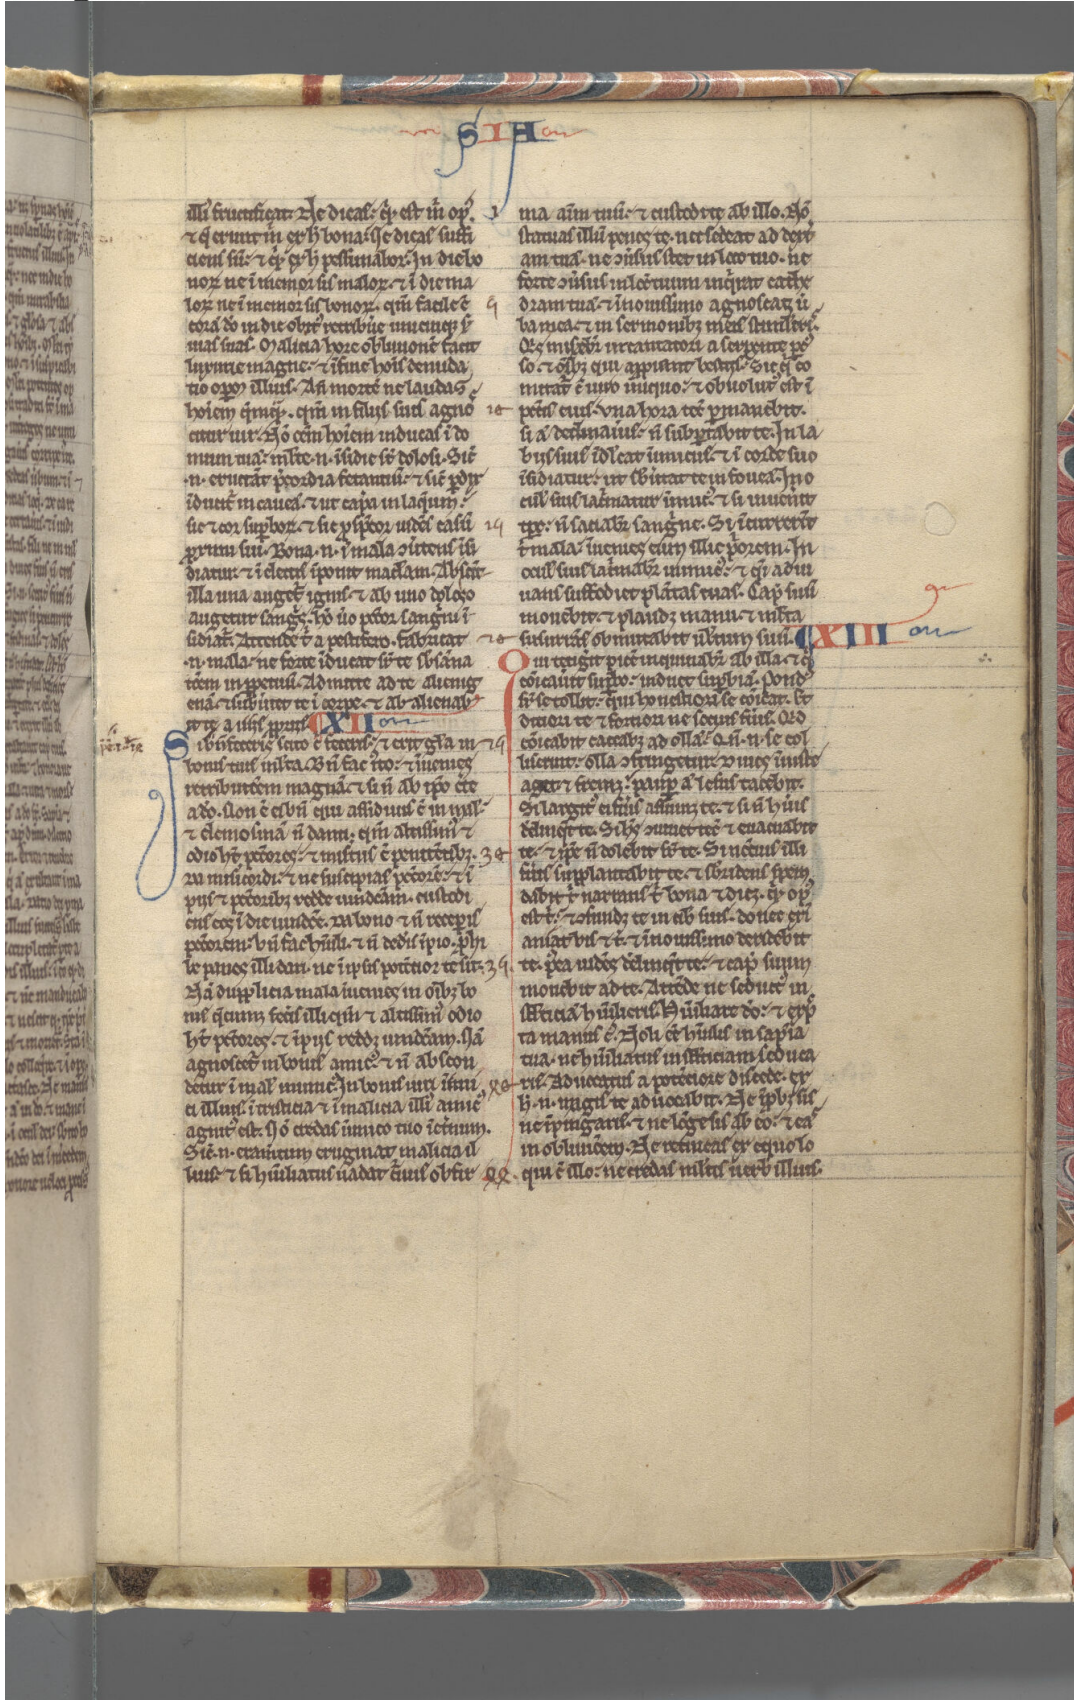 SIA
illi͛ fructificat. Ne dicas. q̇ est m̃ op᷒.
⁊ q̃ erunt m̃ ex h̾ bona. Ne dicas suffi
ciens sũ. ⁊ q̇ ex h̾ pessimabor. In die bo
noꝝ ne ĩmemor sis maloꝝ. ⁊ ĩ die ma
loꝝ ne ĩmemor sis bonoꝝ. qm̃ facile ẽ
corã dõ in die obit᷒ retribuẽ unicuiqꝫ s̃
uias suas. Malicia hore obliuionẽ facit
luxurie magne. ⁊ ĩ fine hoĩs denuda
tio opoꝝ illius. Añ mortẽ ne laudas
hoĩem q̃mq̃. qm̃ in filiis suis agno
citur uir. Nõ oẽm hoĩem inducas ĩ do
mum tuã. ml̃te .n. ĩsidie st̃ dolosi. Sic̃
.n. eructãt p̃cordia fetantiũ. ⁊ sic̃ pdix
ĩducit̃ in caueã. ⁊ ut cap̃a in laq̃um.
sic ⁊ cor suꝑboꝝ. ⁊ sic ꝓspcor uidẽs casũ
ꝓximi sui. Bona .n. ĩ mala ɔ̃uertens ĩsi
diatur. ⁊ ĩ electis ĩponit maclãm. Ab scĩt
illa una auget̃ ignis ⁊ ab uno doloso
augetur sang̃s. hõ ũo pctor sangũi ĩ
sidiat̃. Attende t̃ a pestifero. fabricat
.n. mala. ne forte ĩducat sr̃ te sbsãna
tõem in ꝑpetuũ. Admitte ad te alienig
enã. ⁊ subũtet te ĩ torpe. ⁊ ab alienab
it te a uiis ꝓpriis CXII
Si bñfeceris scito c̃ feceris. ⁊ erit gr̃a in
bonis tuis ml̃ta. Bñ fac iu͛to. ⁊ ĩuenies
retributõem magnã. ⁊ si ñ ab ip̃o c̃te
a dõ. Non ẽ ei bñ qui assiduus ẽ in mal͛
⁊ elemosinã ñ danti. qm̃ altissim᷒ ⁊
odio h̾t pctõres. ⁊ mis̃tus ẽ penitẽtibꝫ.
Da misicordi. ⁊ ne suscipias pctõrẽ. ⁊ ĩ
piis ⁊ pctõribꝫ redde uindictãm. custodi
ens eos ĩ die uindcẽ. Da bono ⁊ ñ receꝑis
pctõrem. bñ fac hũili. ⁊ ñ dedis ĩpio. ꝓhi
be panes illi dari. ne ĩ ip̃sis potẽtior te sit.
Nã dupplicia mala ĩuenies in oĩbꝫ bo
nis q̃cumꝫ fecis illi. qm̃ ⁊ altissim᷒ odio
h̾t pctõres. ⁊ ĩpiis reddꝫ uindctãm. Nõ
agnoscet̃ in bonis amic᷒. ⁊ ñ abscon
detur ĩ mal͛ inimic᷒. In bonis uiri ĩimi
ci illius ĩ tristicia ⁊ ĩ malicia illi͛ amic᷒
agnit᷒ est. Nõ credas ĩimico tuo ĩ et̃num.
Sic̃ .n. eramtum eruginat malicia il
lius. ⁊ si hũiliatus uadat c̃uus obser
1
5
10
15
20
25
30
35
40
ua aĩm tuũ. ⁊ custodi te ab illo. Nõ
statuas illũ penes te. nec sedeat ad dext̃
am tuã. ne ɔ̃uisus stet in loco tuo. ne
forte ɔ̃uisus in locũ tuum inq̃rat cathe
dram tuã. ⁊ ĩ nouissimo agnoscas ũ
ba mea. ⁊ in sermonibꝫ meis stimuler͛.
Q̃s miseb̃r incantatori a serpente pc̃
so. ⁊ oĩbꝫ qui appiant bestiis. Sic q̃ co
mitat̃ c̃ uiro iniquo. ⁊ obuolut᷒ est ĩ
pctĩs eius. Una hora tec̃ ꝑmanebit.
si ã declinaũis. ñ subportabit te. In la
biis suis ĩdlcat ĩimicus. ⁊ ĩ corde suo
ĩsidiatur. ut sb̃uertat te in foueã. In o
culis suis lac̃matur ĩimic᷒. ⁊ si inuenit
tp̃s. ñ saciabr̃ sang̃ne. Si ĩcurrerĩt
t̃ mala. ĩuenies eum illic p̃orem. In
oculis suis lac̃mabr̃ inimic᷒. ⁊ q̃i adiu
uans suffodiet plãtas tuas. Cap᷒ suũ
mouebit. ⁊ plaudꝫ manu. ⁊ ml̃ta
susurrãs ɔ̃mutabit uultum suũ. CXIII
Qui tetigit picẽ inquinabr̃ ab illa. ⁊ q̃
cõicauit suꝑbo. induet suꝑbiã. Pond᷒
sr̃ se tollit. q̃ui honestiori se cõicat. Et
ditiori te ⁊ fortiori ne socius fũis. Qid
cõicabit cacabꝫ ad ollã. Qñ .n. se col
liserint. olla ɔ̃fringetur. Diues ĩiuste
aget. ⁊ fremꝫ. paup ã lesus tacebit.
Si largit᷒ ei fũis assumꝫ te. ⁊ si ñ h̾uis
delinq̃t te. Si h̾es ɔ̃uiuet tec̃ ⁊ euacuabit
te. ⁊ ip̃e ñ dolebit sr̃ te. Si nec̃ius illi
fũis supplantabit te. ⁊ sb̃ridens spem
dabit t̃ narrans t̃ bona ⁊ dicꝫ. q̇ op᷒
est t̃. ⁊ ɔ̃fundꝫ te in cib͛ suis. donec exi
aniat bis ⁊ t̃. ⁊ ĩ nouissimo deridebit
te. p̃ea uidẽs delinq̃t te. ⁊ cap᷒ suum
mouebit ad te. Attẽde ne seduct᷒ in
stl̃ticiã hũilieris. Hũiliare dõ. ⁊ exp̃
ta manus e᷒. Noli ẽe hũilis in sapĩa
tua. ne hũiliatus in stl̃ticiam seduca
ris. Aduocatus a potẽciore discede. ex
h̾ .n. magis te aduocabit. Ne ĩp̃bꝫ sis
ne ĩpingaris. ⁊ ne lõge sis ab eo. ⁊ eas
in obliuiõem. Ne retineas ex equo lo
qui c̃ illo. ne credas ml̃tis ũerb͛ illius.